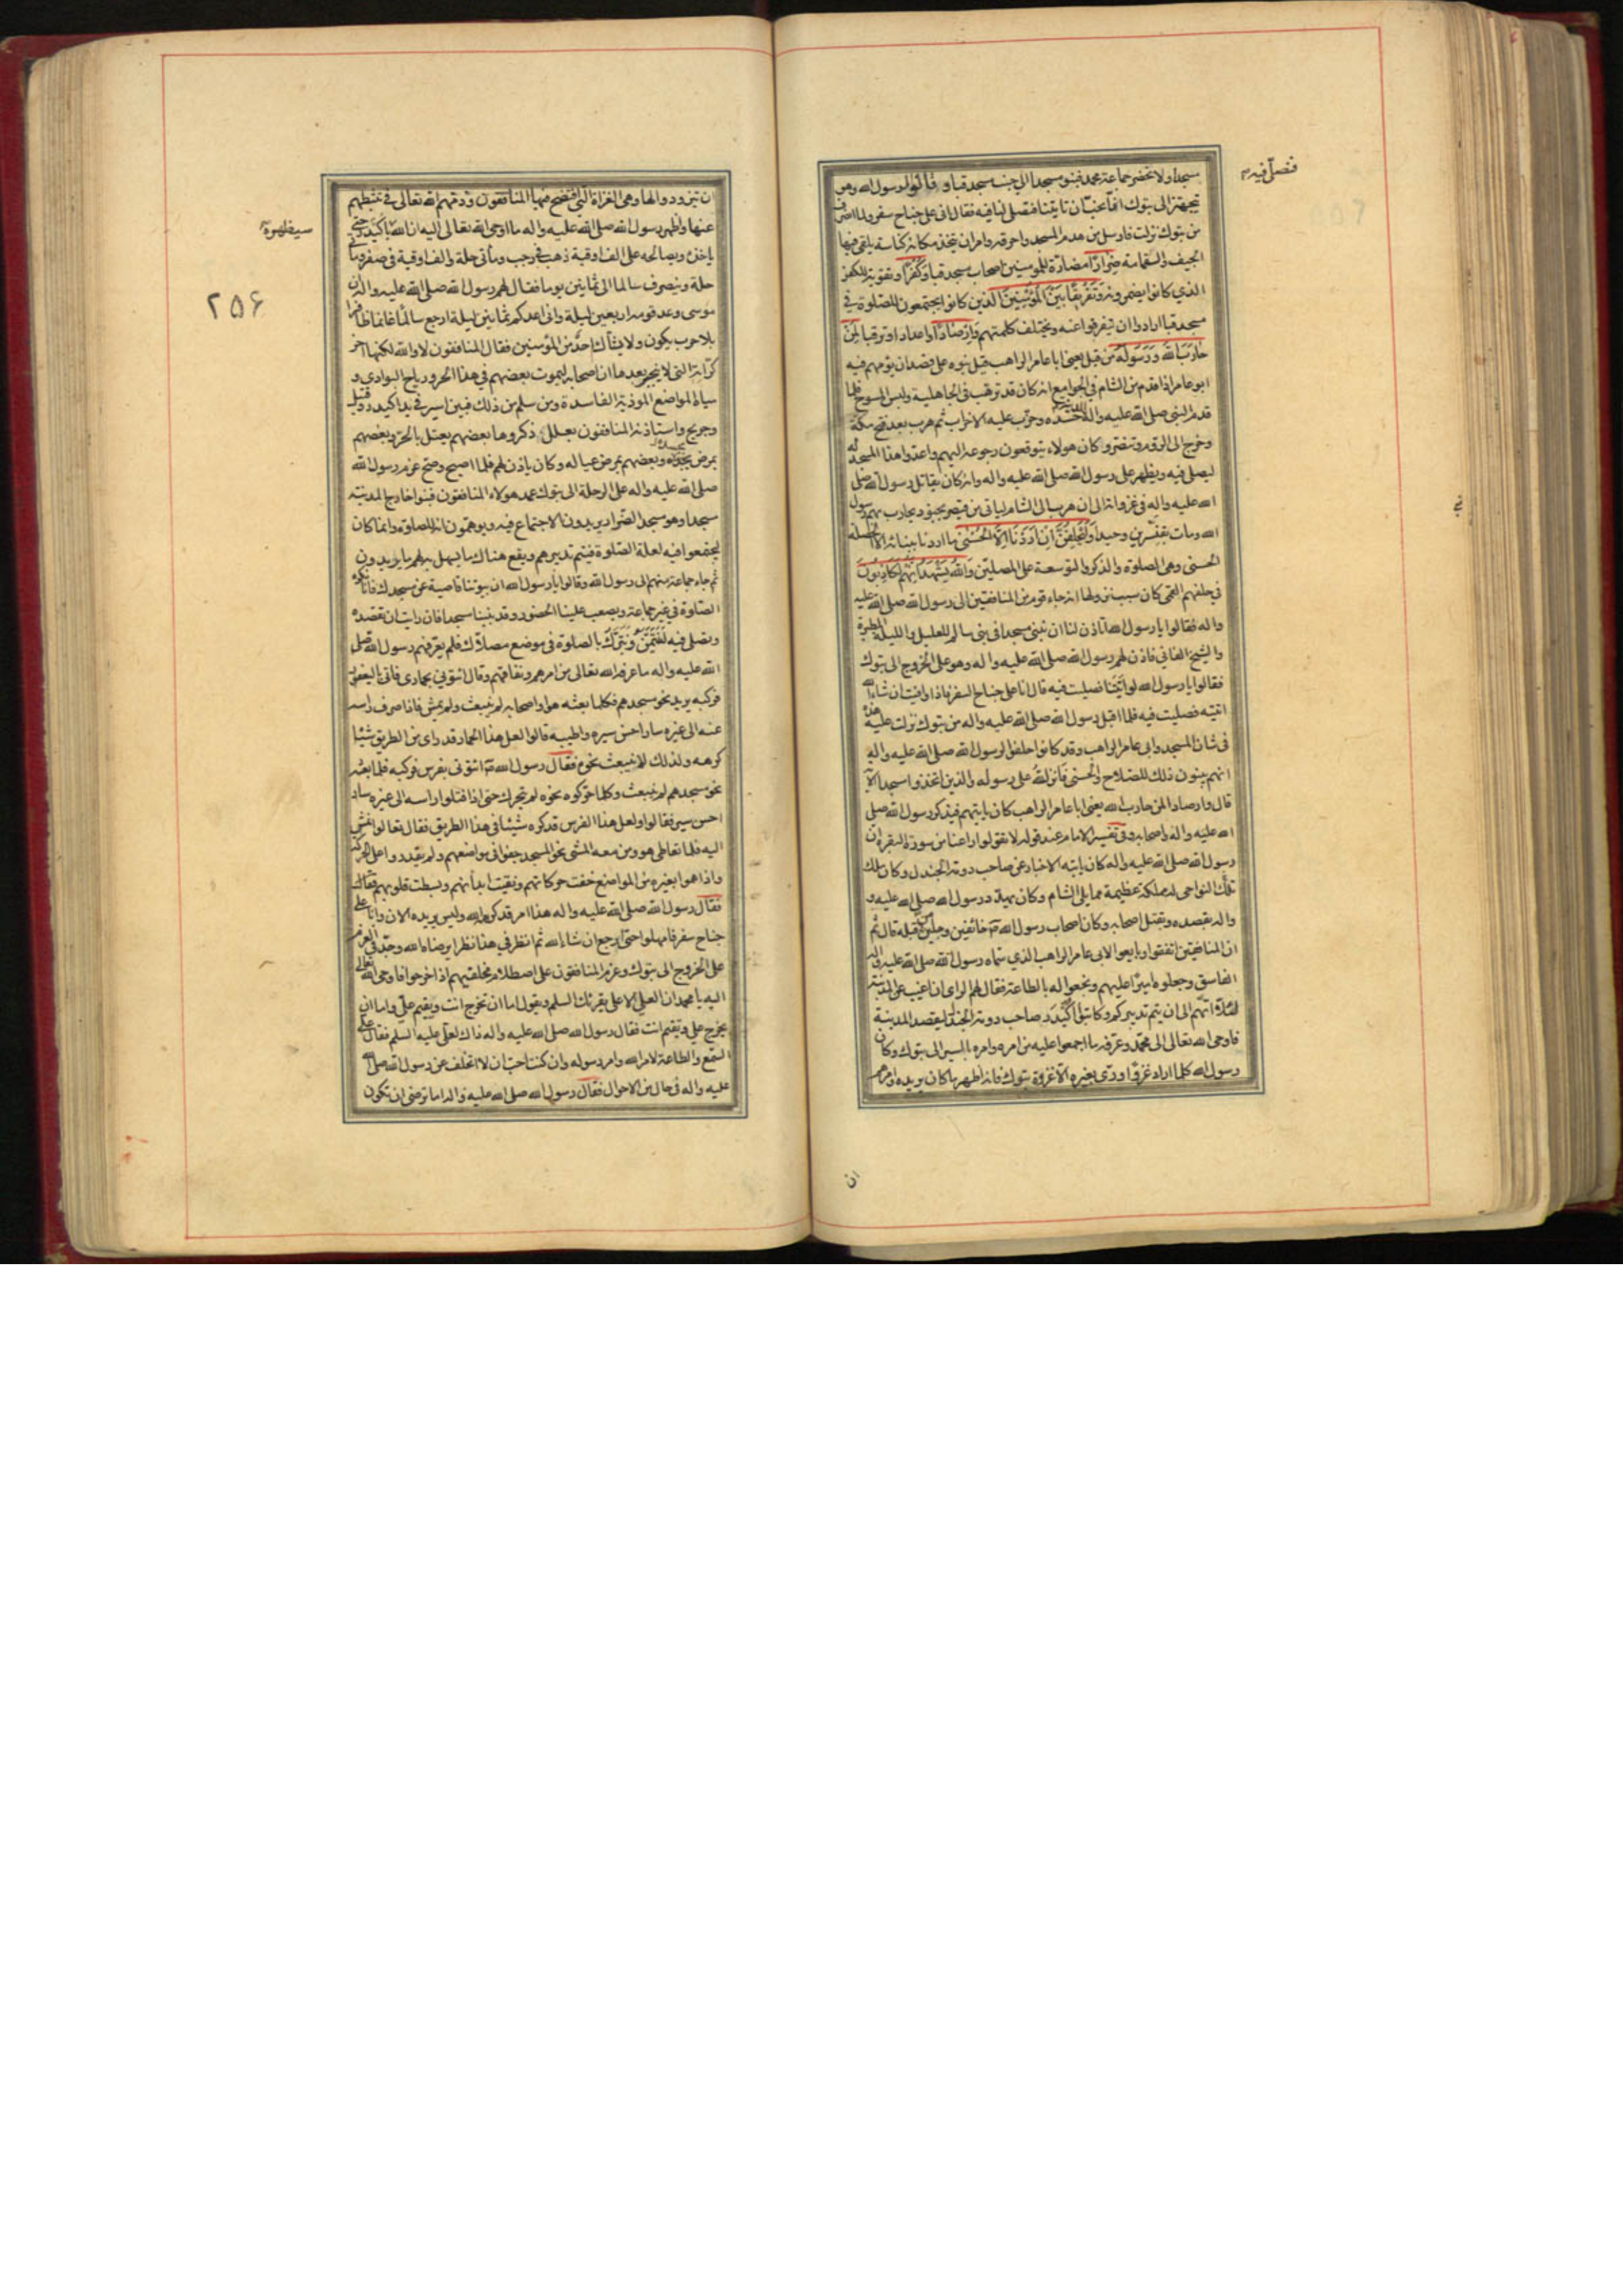 سجدا ولا نحضر جماعة محمد فبنوا مسجدا الى جنب مسجد قبا وقالوا لرسول الله وهو
فصلّى فيه
يتجهز الى تبوك انا نحبّ ان تاتينا فتصلى لنا فيه فقال انى على جناح سفر ولما انصرف
من تبوك نزلت فارسل من هدم المسجد واحرقه وامر ان يتخذ مكانه كناسة يلقى فيها
الجيف والقمامة ضِرارًا مضارّة للمومنين اصحاب مسجد قبا وَكُفْرًا وتقوية للكفر
الذي كانوا يضمرونه وَتَفْرِيقًا بَيْنَ الْمُؤْمِنِينَ الذين كانوا يجتمعون للصلوة في
مسجد قبا ارادوا ان يتفرقوا عنه ويختلف كلمتهم وَاِرْصَادًا واعدادا وترقبا لِمَنْ
حَارَبَ اللهَ وَرَسُولَهُ مِن قبل يعنى ابا عامر الراهب قيل بنوه على قصد ان يؤمهم فيه
ابو عامر اذا قدم من الشام في الجوامع انه كان قد ترهب فى الجاهلية ولبس المسوح فلما
قدم النبى صلى الله عليه واله المدينة حسده وحزّب عليه الاحزاب ثم هرب بعد فتح مكة
وخرج الى الروم وتنصّر وكان هولاء يتوقعون رجوعه اليهم واعدوا هذا المسجد له
ليصلى فيه ويظهر على رسول الله صلى الله عليه واله وانه كان يقاتل رسول الله صلى
الله عليه واله فى غزواته الى ان هرب الى الشام لياتى من قيصر بجنود يحارب بهم رسول
الله ومات بقنّسرين وحيدا وَلَيَحْلِفُنَّ اِنْ اَرَدْنَا اِلَّا الْحُسْنٰى ما اردنا ببنائه الا الخصلة
الحسنى وهى الصلوة والذكر والتوسعة على المصلين وَاللهُ يَشْهَدُ اِنَّهُمْ لَكَاذِبُونَ
في حلفهم القمى كان سبب نزولها انه جاء قوم من المنافقين الى رسول الله صلى الله عليه
واله فقالوا يا رسول الله تاذن لنا ان نبنى مسجدا فى بنى سالم للعليل والليلة المطيرة
والشيخ الفانى فاذن لهم رسول الله صلى الله عليه واله وهو على الخروج الى تبوك
فقالوا يا رسول الله لو اتيتنا فصليت فيه قال انا على جناح السفر فاذا وافيت ان شاء الله
اتيته فصليت فيه فلما اقبل رسول الله صلى الله عليه واله من تبوك نزلت عليه هذه
فى شان المسجد وابى عامر الراهب وقد كانوا حلفوا لرسول الله صلى الله عليه واله
انهم يبنون ذلك للصلاح والحسنى فانزل الله على رسوله والذين اتخذوا مسجدا الآية
قال وارصادا لمن حارب الله يعنى ابا عامر الراهب كان ياتيهم فيذكر رسول الله صلى
الله عليه واله واصحابه وفى تفسير الامام عند قوله لا تقولوا راعنا من سورة البقرة ان
رسول الله صلى الله عليه واله كان ياتيه الاخبار عن صاحب دومة الجندل وكان ملك
تلك النواحى له مملكة عظيمة مما يلى الشام وكان يهدد رسول الله صلى الله عليه و
واله بقصده وبقتل اصحابه وكان اصحاب رسول الله ص خائفين وجلين من قبله قال ثم
ان المنافقين اتفقوا وبايعوا لابى عامر الراهب الذي سماه رسول الله صلى الله عليه واله
الفاسق وجعلوه اميرا عليهم ونجعوا له بالطاعة فقال لهم الراى ان اغيب عن المدينة
لئلا اتهم الى ان يتم تدبيركم وكاتبوا اُكَيْدَر صاحب دومة الجندل ليقصد المدينة
فاوحى الله تعالى الى محمّد وعرفه ما اجمعوا عليه من امره وامره بالمسير الى تبوك وكان
رسول الله كلما اراد غزوا ورّى بغيره الا غزوة تبوك فانه اظهر ما كان يريده وامرهم
ان
ان تيزودوا لها وهى الغزاة التى افتضح فيها المنافقون وذمهم الله تعالى فى تثبطهم
عنها واظهر رسول الله صلى الله عليه واله ما اوحى الله تعالى اليه ان الله
سيظهره
ياخذه ويصالحه على الف اوقية ذهب فى رجب ومأتى حلة والف اوقية فى صفر ومأتى
حلة وينصرف سالما الى ثمانين يوما فقال لهم رسول الله صلى الله عليه واله ان
٢٥۶
موسى وعد قومه اربعين ليلة وانى اعدكم ثمانين ليلة ارجع سالمًا غانما ظافرا
بلا حرب يكون ولا يشاك احدٌ من المؤمنين فقال المنافقون لا والله لكنها اخر
كرّاته التى لا ينجبر بعدها ان اصحابه ليموت بعضهم في هذا الحر ورياح البوادي و
مياه المواضع الموذية الفاسدة ومن سلم من ذلك فبين اسير فى يد اكيدر وقتيل
وجريح واستاذنه المنافقون بعلل ذكروها بعضهم يعتل بالحرّ وبعضهم
بمرض بجسده وبعضهم بمرض عياله وكان ياذن لهم فلما اصبح وصح عزم رسول الله
صلى الله عليه واله على الرحلة الى تبوك عمد هولاء المنافقون فبنوا خارج المدينة
مسجدا وهو مسجد الضرار يريدون الاجتماع فيه ويوهمون انه للصلوة وانما كان
ليجتمعوا فيه لعلة الصّلوة فيتم تدبيرهم ويقع هناك ما يسهل به لهم ما يريدون
ثم جاء جماعة منهم الى رسول الله وقالوا يا رسول الله ان بيوتنا قاصية عن مسجدك فانا نكره
الصّلوة فى غير جماعة ويصعب علينا الحضور وقد بنينا مسجدا فان رايت ان تقصده
وتصلى فيه لنتيمّن ونتبرّك بالصلوة فى موضع مصلاك فلم يعرّفهم رسول الله صلى
الله عليه واله ما عرفه الله تعالى من امرهم ونفاقهم وقال ائتونى بحمارى فاتى باليعفور
فركبه يريد نحو مسجدهم فكلما بعثه هو واصحابه لم ينبعث ولم يمش فاذا صرف راسه
عنه الى غيره سار احسن سيره واطيبه قالوا لعل هذا الحمار قد راى من الطريق شيئا
كرهه ولذلك لا ينبعث نحوه فقال رسول الله ص ائتونى بفرس فركبه فلما بعثه
نحو مسجدهم لم ينبعث وكلما حرّكوه نحوه لم يتحرك حتى اذا فتلوا راسه الى غيره سار
احسن سير فقالوا ولعل هذا الفرس قد كره شيئا فى هذا الطريق فقال تعالوا نمشى
اليه فلما تعاطى هو ومن معه المشى نحو المسجد جفوا فى مواضعهم ولم يقدروا على الحركة
واذا هموا بغيره من المواضع خفت حركاتهم ونقيت ابدانهم وبسطت قلوبهم فقال
فقال رسول الله صلى الله عليه واله هذا امر قد كرهه الله وليس يريده الان وانا على
جناح سفر فامهلوا حتى ارجع ان شاء الله ثم انظر فى هذا نظرا يرضاه الله وجدّ فى العزم
على الخروج الى تبوك وعزم المنافقون على اصطلام مخلفيهم اذا خرجوا فاوحى الله تعالى
اليه يا محمد ان العلى الاعلى يقرئك السلم ويقول اما ان تخرج انت ويقيم علىّ واما ان
يخرج على وتقيم انت فقال رسول الله صلى الله عليه واله ذاك لعلىّ عليه السلم فقال علىّ
السمع والطاعة لامر الله وامر رسوله وان كنت احبّ ان لا اتخلف عن رسول الله صلى الله
عليه واله فى حال من الاحوال فقال رسول الله صلى الله عليه واله اما ترضى ان تكون